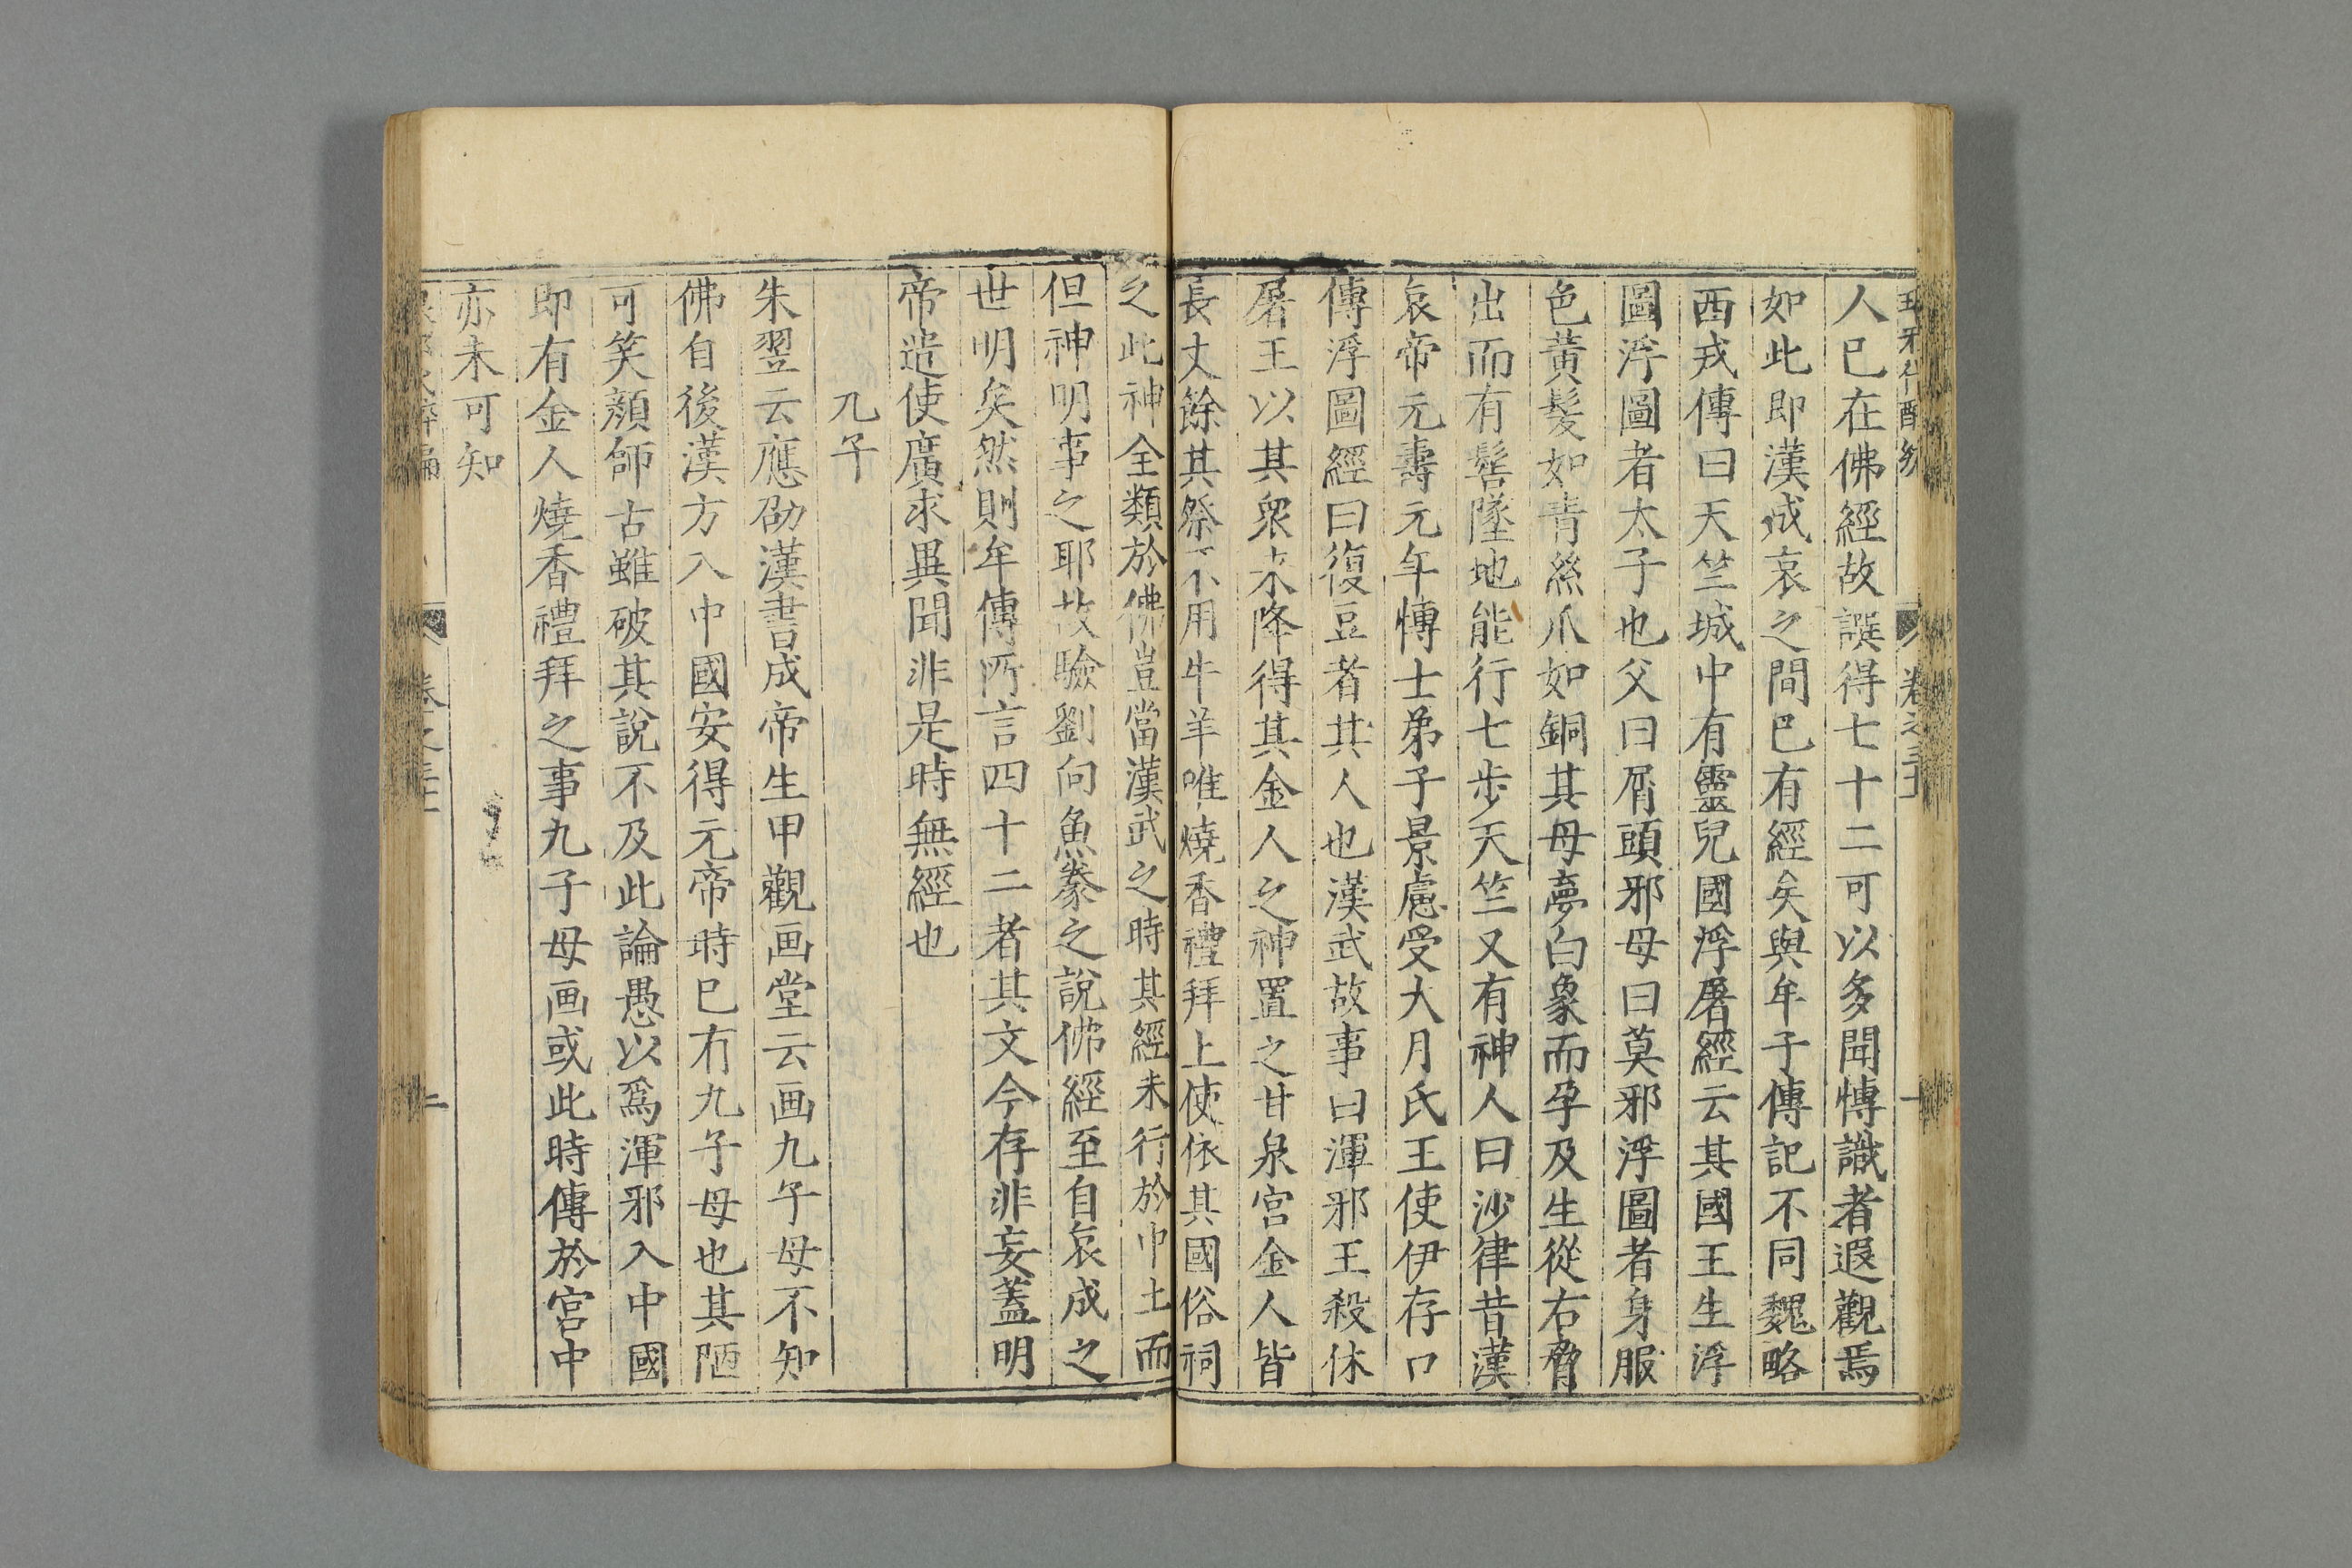 人已在佛經故譔得七十二可以多聞慱識者遐觀焉
如此即漢成哀之間已有經矣與牟子傳記不同魏略
西戎傳曰天竺城中有靈兒國浮屠經云其國王生浮
圖浮圖者太子也父曰屑頭邪母曰莫邪浮圖者身服
色黃髮如青絲爪如銅其母夢白象而孕及生從右脅
出而有髻墜地能行七步天竺又有神人曰沙律昔漢
哀帝元壽元年慱士弟子景慮受大月氏王使伊存口
傳浮圖經曰復豆者其人也漢武故事曰渾邪王殺休
屠王以其衆來降得其金人之神置之甘泉宮金人皆
長丈餘其祭不用牛羊唯燒香禮拜上使依其國俗祠
之此神全類於佛豈當漢武之時其經未行於中土而
但神明事之耶故驗劉向魚豢之說佛經至自哀成之
世明矣然則牟傳所言四十二者其文今存非妄蓋明
帝遣使廣求異聞非是時無經也
九子
朱翌云應劭漢書成帝生甲觀画堂云画九子母不知
佛自後漢方入中國安得元帝時已有九子母也其陋
可笑顏師古雖破其說不及此論愚以爲渾邪入中國
即有金人燒香禮拜之事九子母画或此時傳於宮中
亦未可知
卷之三十
二